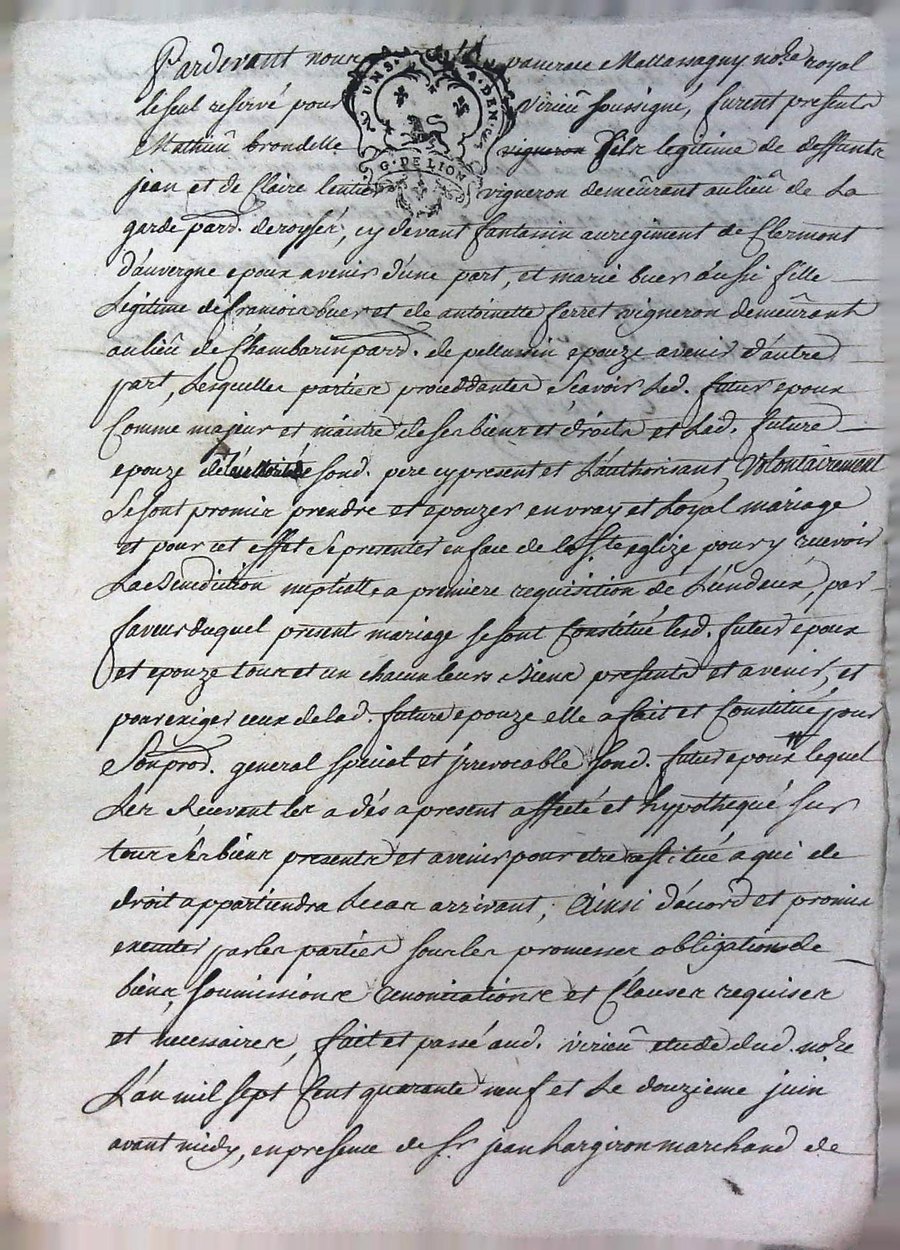 Pardevant nous pancrace Mallassagny no.re royal
le seul reservé pour Virieû soussigné, furent presents
Mathieû brondelle vigneron fils legitime de deffunts
jean et de Claire lentier vigneron demeûrant au lieû de La
garde parr. de royssé, cy devant fantassin au regiment de Clermont
d'auvergne epoux avenir d'une part, et marie buer aussi fille
Legitime de francois buer et de antoinette ferret vigneron demeûrant
au lieû de Chambarin parr. de pellussin epouze avenir d'autre
part, Lesquelles parties proceddantes Scavoir Led. futur epoux
Comme majeur et maitre de ses biens et droits et Lad. future
epouze de l'authorité de sond. pere cy present et L'authorisant, Volontairement
Se sont promis prendre et epouzer en vray et Loyal mariage
et pour cet effet Se presenter en face de la Ste eglize pour y recevoir
La Benediction nuptialle a premiere requisition de L'un d'eux, par
faveur duquel present mariage se sont Constitué lesd. futur epoux
et epouze tous et un chacun leurs Biens presents et avenir, et
pour exiger ceux de lad. future epouze elle a fait et Constitué pour
Son prod. general special et jrrevocable sond. futur epoux lequel
Les Recevant les a dés a present affecté et hypothequé sur
tous ses biens presents et avenir pour etre restitué a qui de
droit appartiendra Le cas arrivant; Ainsi d'acord et promis
executer par les parties sous les promesses obligations de
biens, soumissions renonciations et Clauses requises
et necessaires, fait et passé aud. virieû etude dud. no.re
L'an mil sept Cent quarante neuf et Le douzieme juin
avant midy, en presence de Sr jean hargiron marchand de
G. DE LION